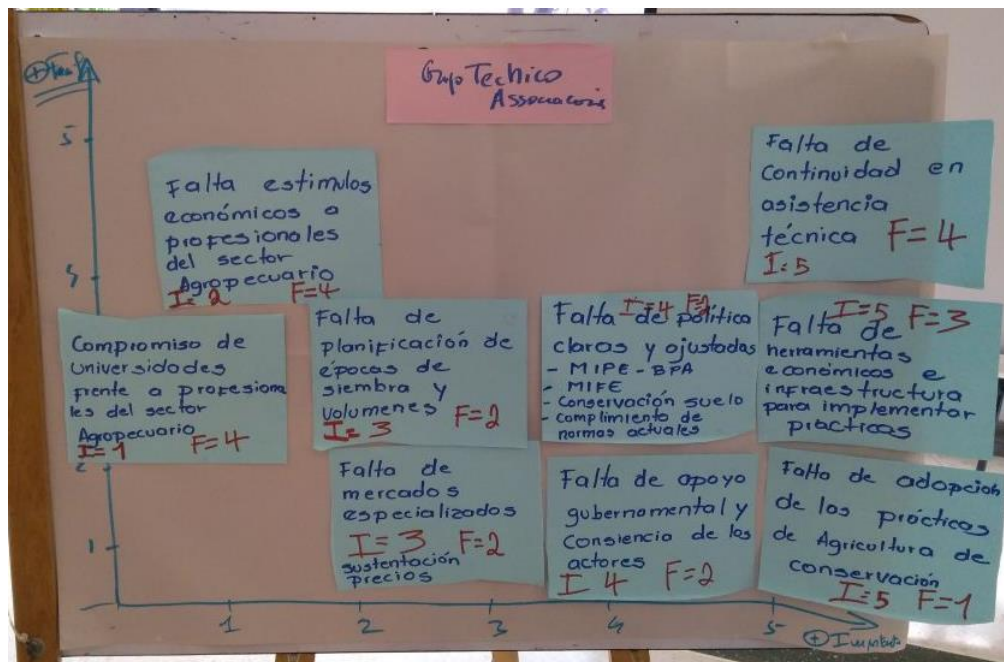 Grupo Technico
5
4
2
1
1
2
3
4
5
Falta estimulos
económicos a
profesionales
del sector
Agropecuario
I= 2 F=4
Falta de
Continuidad en
asistencia
técnica F=4
I=5
Compromiso de
Universidades
frente a profesiona
les del sector
Agropecuario
I=1 F=4
Falta de
planificación de
épocas de
siembra y
volumenes F=2
I= 3
I=4
Falta de política
claras y ajustadas
- MIPE - BPA
- MIFE
- Conservación suelo
- Complimiento de
normas actuales
I=5 F=3
Falta de
herramientas
económicos e
infraestructura
para implementar
prácticas
Falta de
mercados
especializados
I=3 F=2
sustentación
precios
Falta de apoyo
gubernamental y
Consiencia de los
actores
I 4 F=2
Falta de adopcion
de las prácticas
de Agricultura de
conservación
I=5 F=1